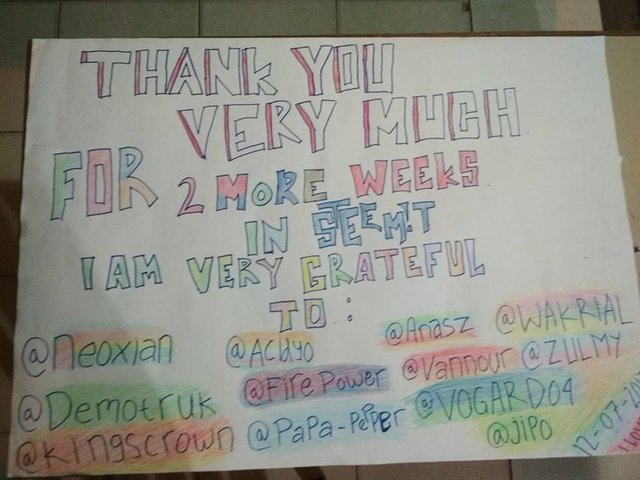 THANK YOU
VERY MUCH
FOR 2 MORE WEEKS
IN STEEM!T
I AM VERY GRATEFUL
TO :
@Neoxian @Acidyo @Anasz @WAKRIAL
@Fire Power @Vannour @ZULMY
@Demotruk @PaPa-PePPer @VOGARD04
@kingscrown @JiPO
12-07-